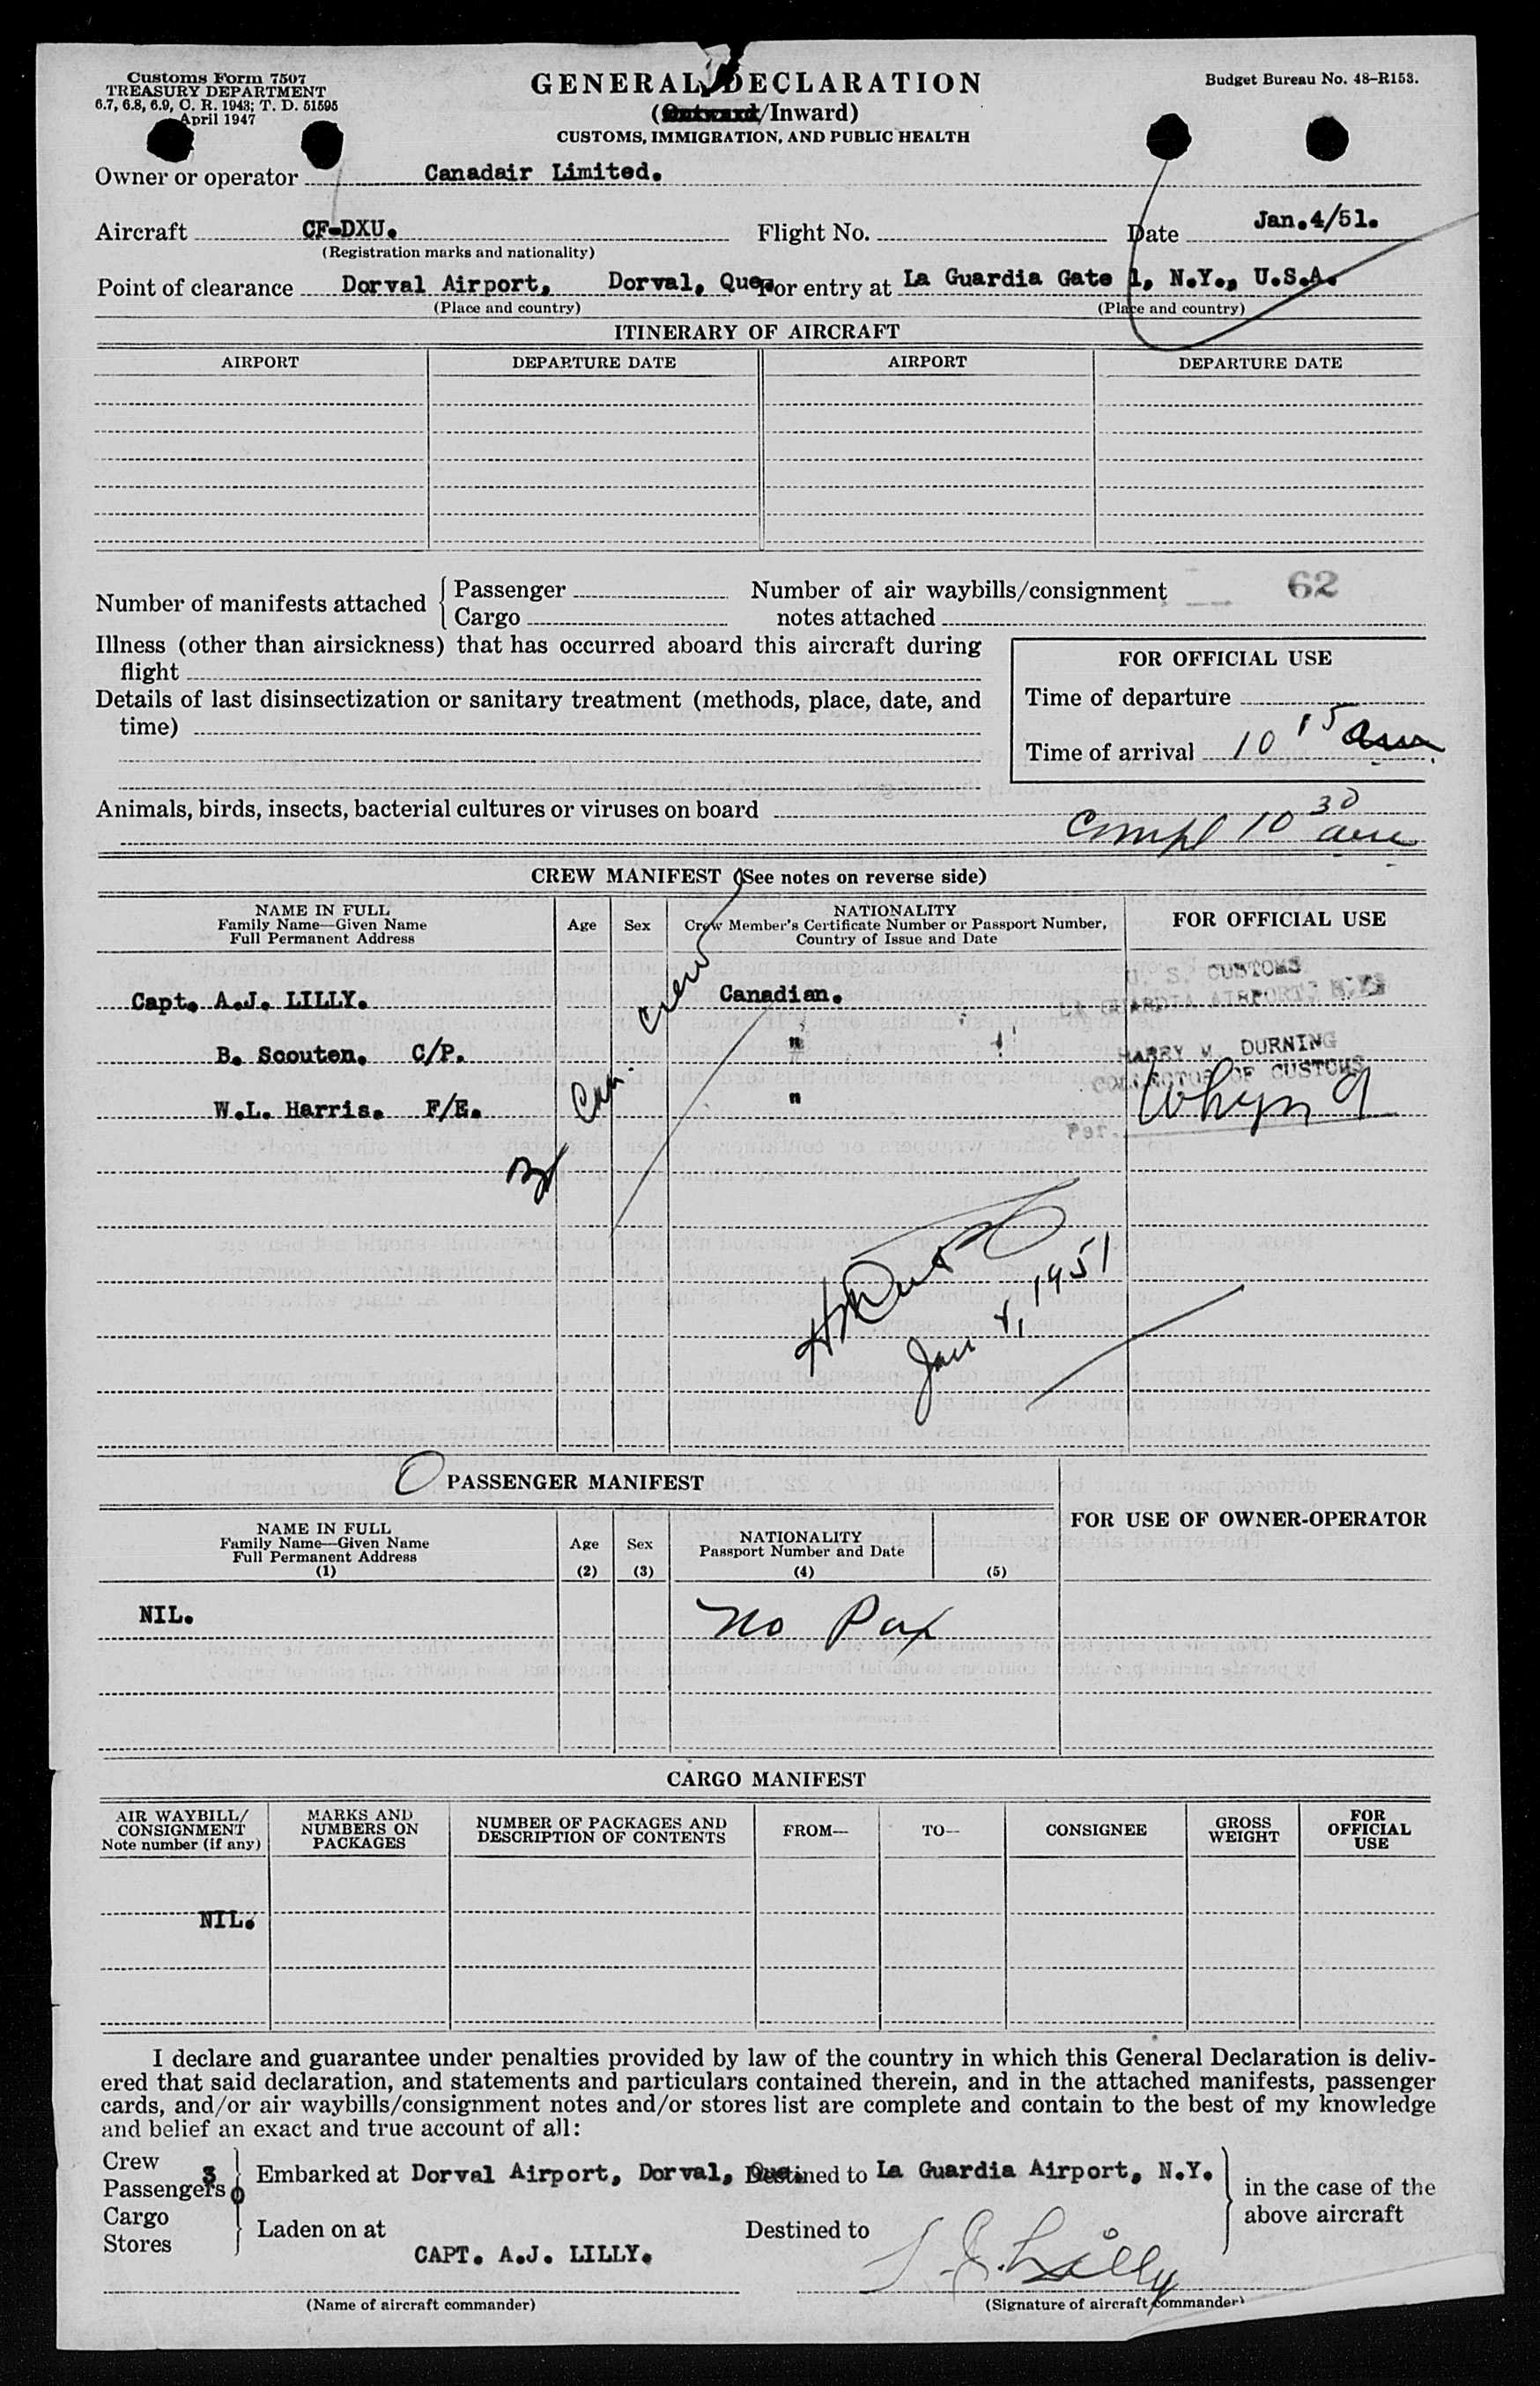 Customs Form 7507
TREASURY DEPARTMENT
6.7, 6.8, 6.9, C. R. 1943; T. D. 51595
April 1947
GENERAL DECLARATION
(Outward/Inward)
CUSTOMS, IMMIGRATION, AND PUBLIC HEALTH
Budget Bureau No. 48-R153.
Owner or operator Canadair Limited.
Aircraft CF-DXU. Flight No. Date Jan.4/51.
(Registration marks and nationality)
Point of clearance Dorval Airport, Dorval, Que. For entry at La Guardia Gate 1, N.Y., U.S.A.
(Place and country) (Place and country)
ITINERARY OF AIRCRAFT
AIRPORT DEPARTURE DATE AIRPORT DEPARTURE DATE
Number of manifests attached { Passenger
Cargo
Number of air waybills/consignment
notes attached
62
Illness (other than airsickness) that has occurred aboard this aircraft during
flight
Details of last disinsectization or sanitary treatment (methods, place, date, and
time)
FOR OFFICIAL USE
Time of departure
Time of arrival 10 15 am
Animals, birds, insects, bacterial cultures or viruses on board
Compl 10 30 am
CREW MANIFEST (See notes on reverse side)
NAME IN FULL
Family Name—Given Name
Full Permanent Address
Age Sex
NATIONALITY
Crew Member's Certificate Number or Passport Number,
Country of Issue and Date
FOR OFFICIAL USE
Capt. A.J. LILLY. Canadian.
B. Scouten. C/P. "
W.L. Harris. F/E. "
3 Can. Crew
U. S. CUSTOMS
LA GUARDIA AIRPORT, N.Y.
HARRY M. DURNING
COLLECTOR OF CUSTOMS
Per.
Jan 4, 1951
0 PASSENGER MANIFEST
FOR USE OF OWNER-OPERATOR
NAME IN FULL
Family Name—Given Name
Full Permanent Address
(1)
Age
(2)
Sex
(3)
NATIONALITY
Passport Number and Date
(4)
(5)
NIL. No Pax
CARGO MANIFEST
AIR WAYBILL/
CONSIGNMENT
Note number (if any)
MARKS AND
NUMBERS ON
PACKAGES
NUMBER OF PACKAGES AND
DESCRIPTION OF CONTENTS
FROM—
TO—
CONSIGNEE
GROSS
WEIGHT
FOR
OFFICIAL
USE
NIL.
I declare and guarantee under penalties provided by law of the country in which this General Declaration is deliv-
ered that said declaration, and statements and particulars contained therein, and in the attached manifests, passenger
cards, and/or air waybills/consignment notes and/or stores list are complete and contain to the best of my knowledge
and belief an exact and true account of all:
Crew 3
Passengers 0
Cargo
Stores
Embarked at Dorval Airport, Dorval, Que. Destined to La Guardia Airport, N.Y.
Laden on at Destined to
in the case of the
above aircraft
CAPT. A.J. LILLY. A.J. Lilly
(Name of aircraft commander) (Signature of aircraft commander)